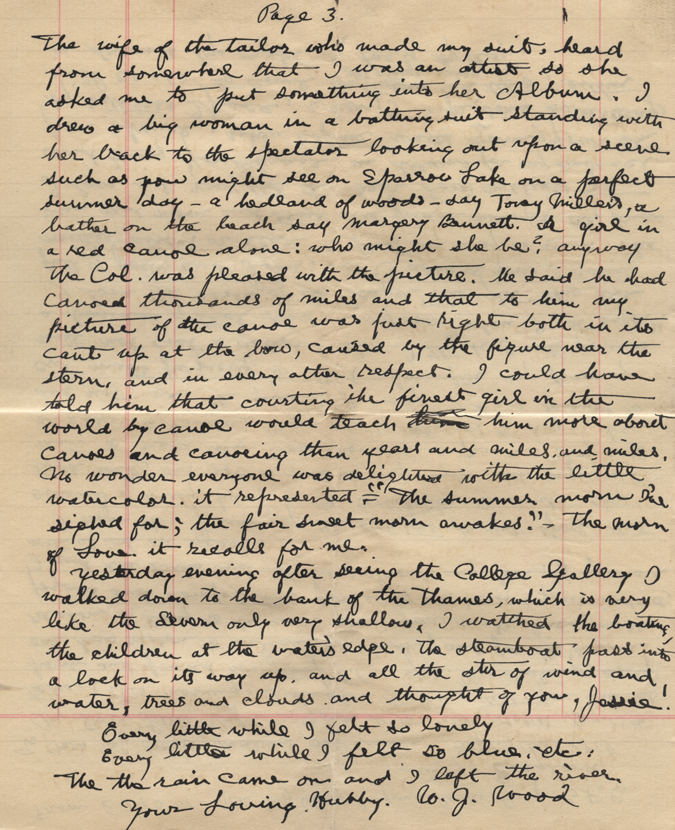 Page 3.
The wife of the tailor who made my suit, heard
from somewhere that I was an artist so she
asked me to put something into her Album. I
drew a big woman in a bathing suit standing with
her back to the spectator looking out upon a scene
such as you might see on Sparrow Lake on a perfect
summer day - a hedland of woods - say Tony Millers, a
bather on the beach say Margery Bennett. A girl in
a red canoe alone: who might she be? anyway
the Col. was pleased with the picture. He said he had
canoed thousands of miles and that to him my
picture of the canoe was just right both in its
cant up at the bow, caused by the figure near the
stern, and in every other respect. I could have
told him that courting the finest girl in the
world by canoe would teach him more about
canoes and canoeing than years and miles, and miles.
No wonder everyone was delighted with the little
watercolor. it represented = "The summer morn I've
sighed for; the fair sweet morn awakes!" - The morn
of Love. it recalls for me.
yesterday evening after seeing the College Gallery I
walked down to the bank of the Thames, which is very
like the Severn only very shallow, I watched the boating,
the children at the water's edge, the steamboat pass into
a lock on its way up. and all the stir of wind and
water, trees and clouds and thought of you, Jessie!
Every little while I felt so lonely
Every little while I felt so blue, etc:
The the rain came on and I left the river.
Your Loving Hubby. W. J. Wood